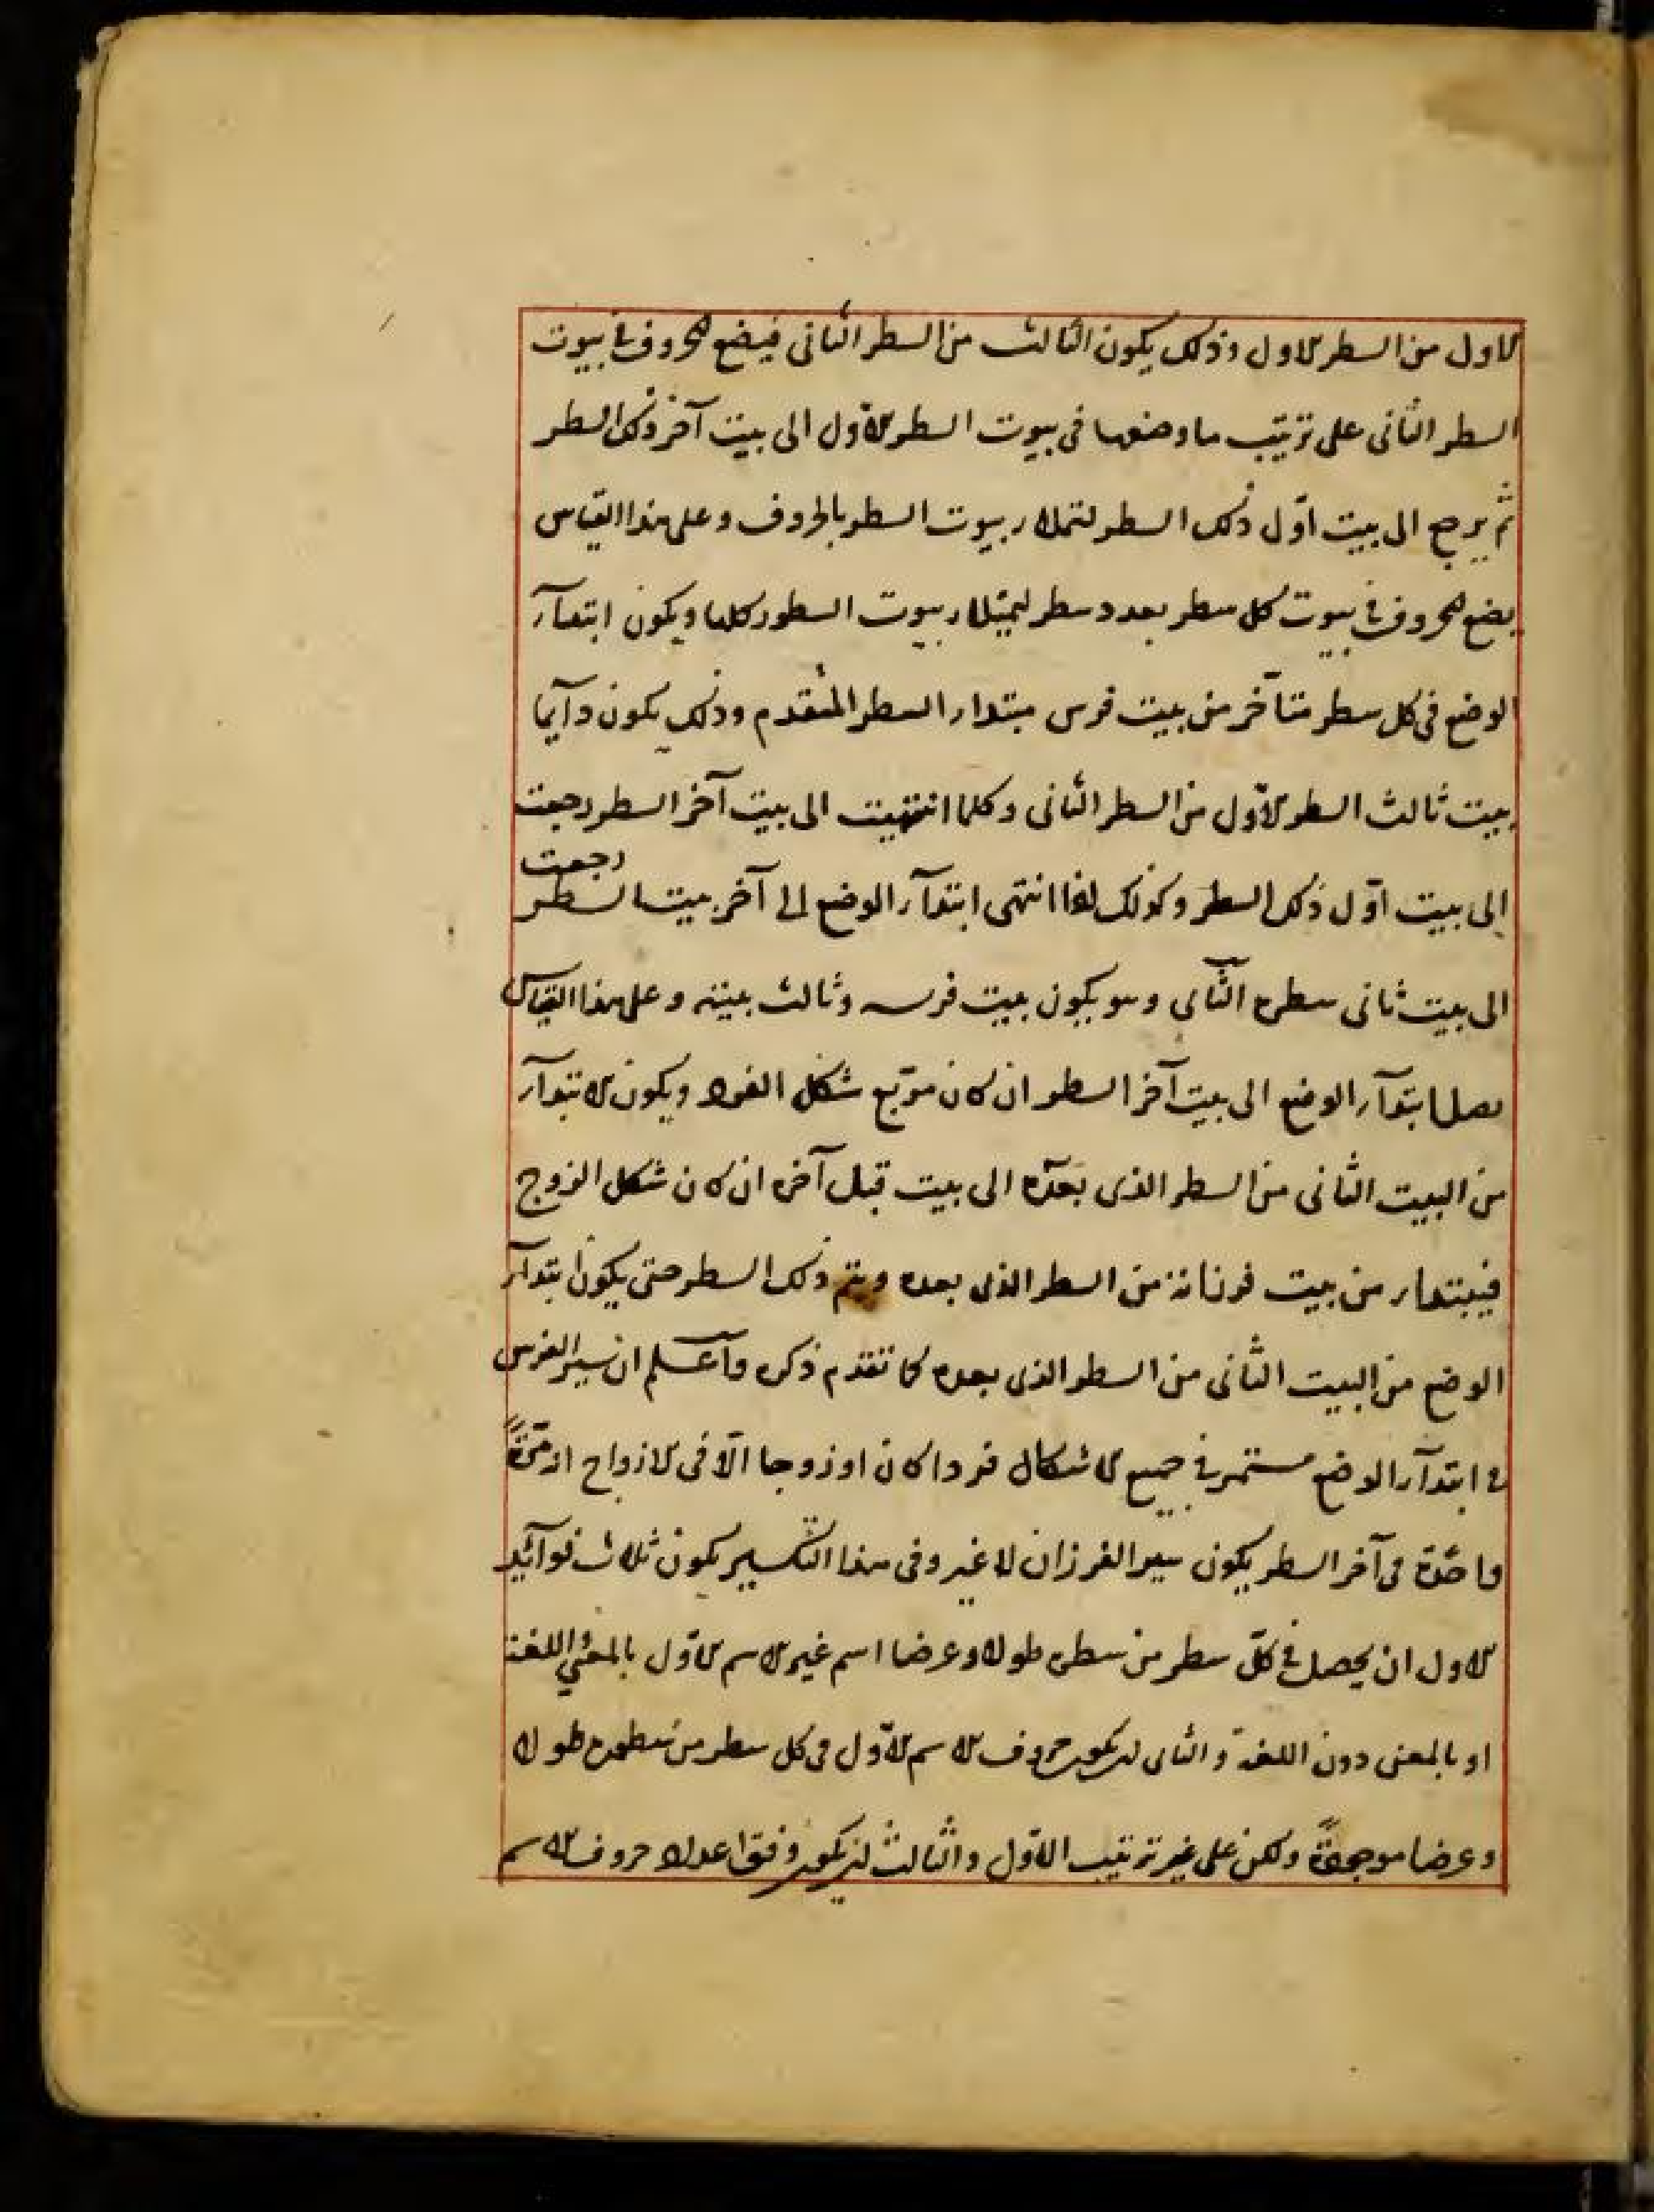 الاول من السطر الاول وذلك يكون الثالث من السطر الثانى فيضع الحروف فى بيوت
السطر الثانى على ترتيب ما وضعها فى بيوت السطر الاوّل الى بيت آخر ذلك السطر
ثم يرجع الى بيت اوّل ذلك السطر لتملاء بيوت السطر بالحروف وعلى هذا القياس
يضع الحروف فى بيوت كل سطر بعد سطر ليمتلاء بيوت السطور كلها ويكون ابتدآء
الوضع فى كل سطر متأخر من بيت فرس مبتداء السطر المتقدم وذلك يكون دآيما
بيت ثالث السطر الاوّل من السطر الثانى وكلما انتهيت الى بيت آخر السطر رجعت
الى بيت اوّل ذلك السطر وكذلك اذا انتهى ابتدآء الوضع الى آخر بيت السطر
رجعت
الى بيت ثانى سطره الثانى وهو يكون بيت فرسه وثالث بيته وعلى هذا القياس
يصل ابتدآء الوضع الى بيت آخر السطر ان كان مربّع شكل الفرد ويكون الابتدآء
من البيت الثانى من السطر الذى بعده الى بيت قبل آخره ان كان شكل الزوج
فيبتداء من بيت فرزانه من السطر الذى بعده ويتم ذلك السطر حتى يكون ابتدآء
الوضع من البيت الثانى من السطر الذى بعده كما تقدم ذكره وآعلم ان سير الفرس
فى ابتدآء الوضع مستمر فى جميع الاشكال فردا كان او زوجا الّا فى الازواج اذ مرّة
واحدة فى آخر السطر يكون سير الفرزان لا غير وفى هذا التكسير يكون ثلاث فوآئد
الاول ان يحصل فى كلّ سطر من سطره طولا وعرضا اسم غير الاسم الاوّل بالمعنى واللغة
او بالمعنى دون اللغة والثانى ان يكون حروف الاسم الاوّل فى كل سطر من سطوره طولا
وعرضا موجودة ولكن على غير ترتيب الاوّل والثالث ان يكون وفق اعداد حروف الاسم